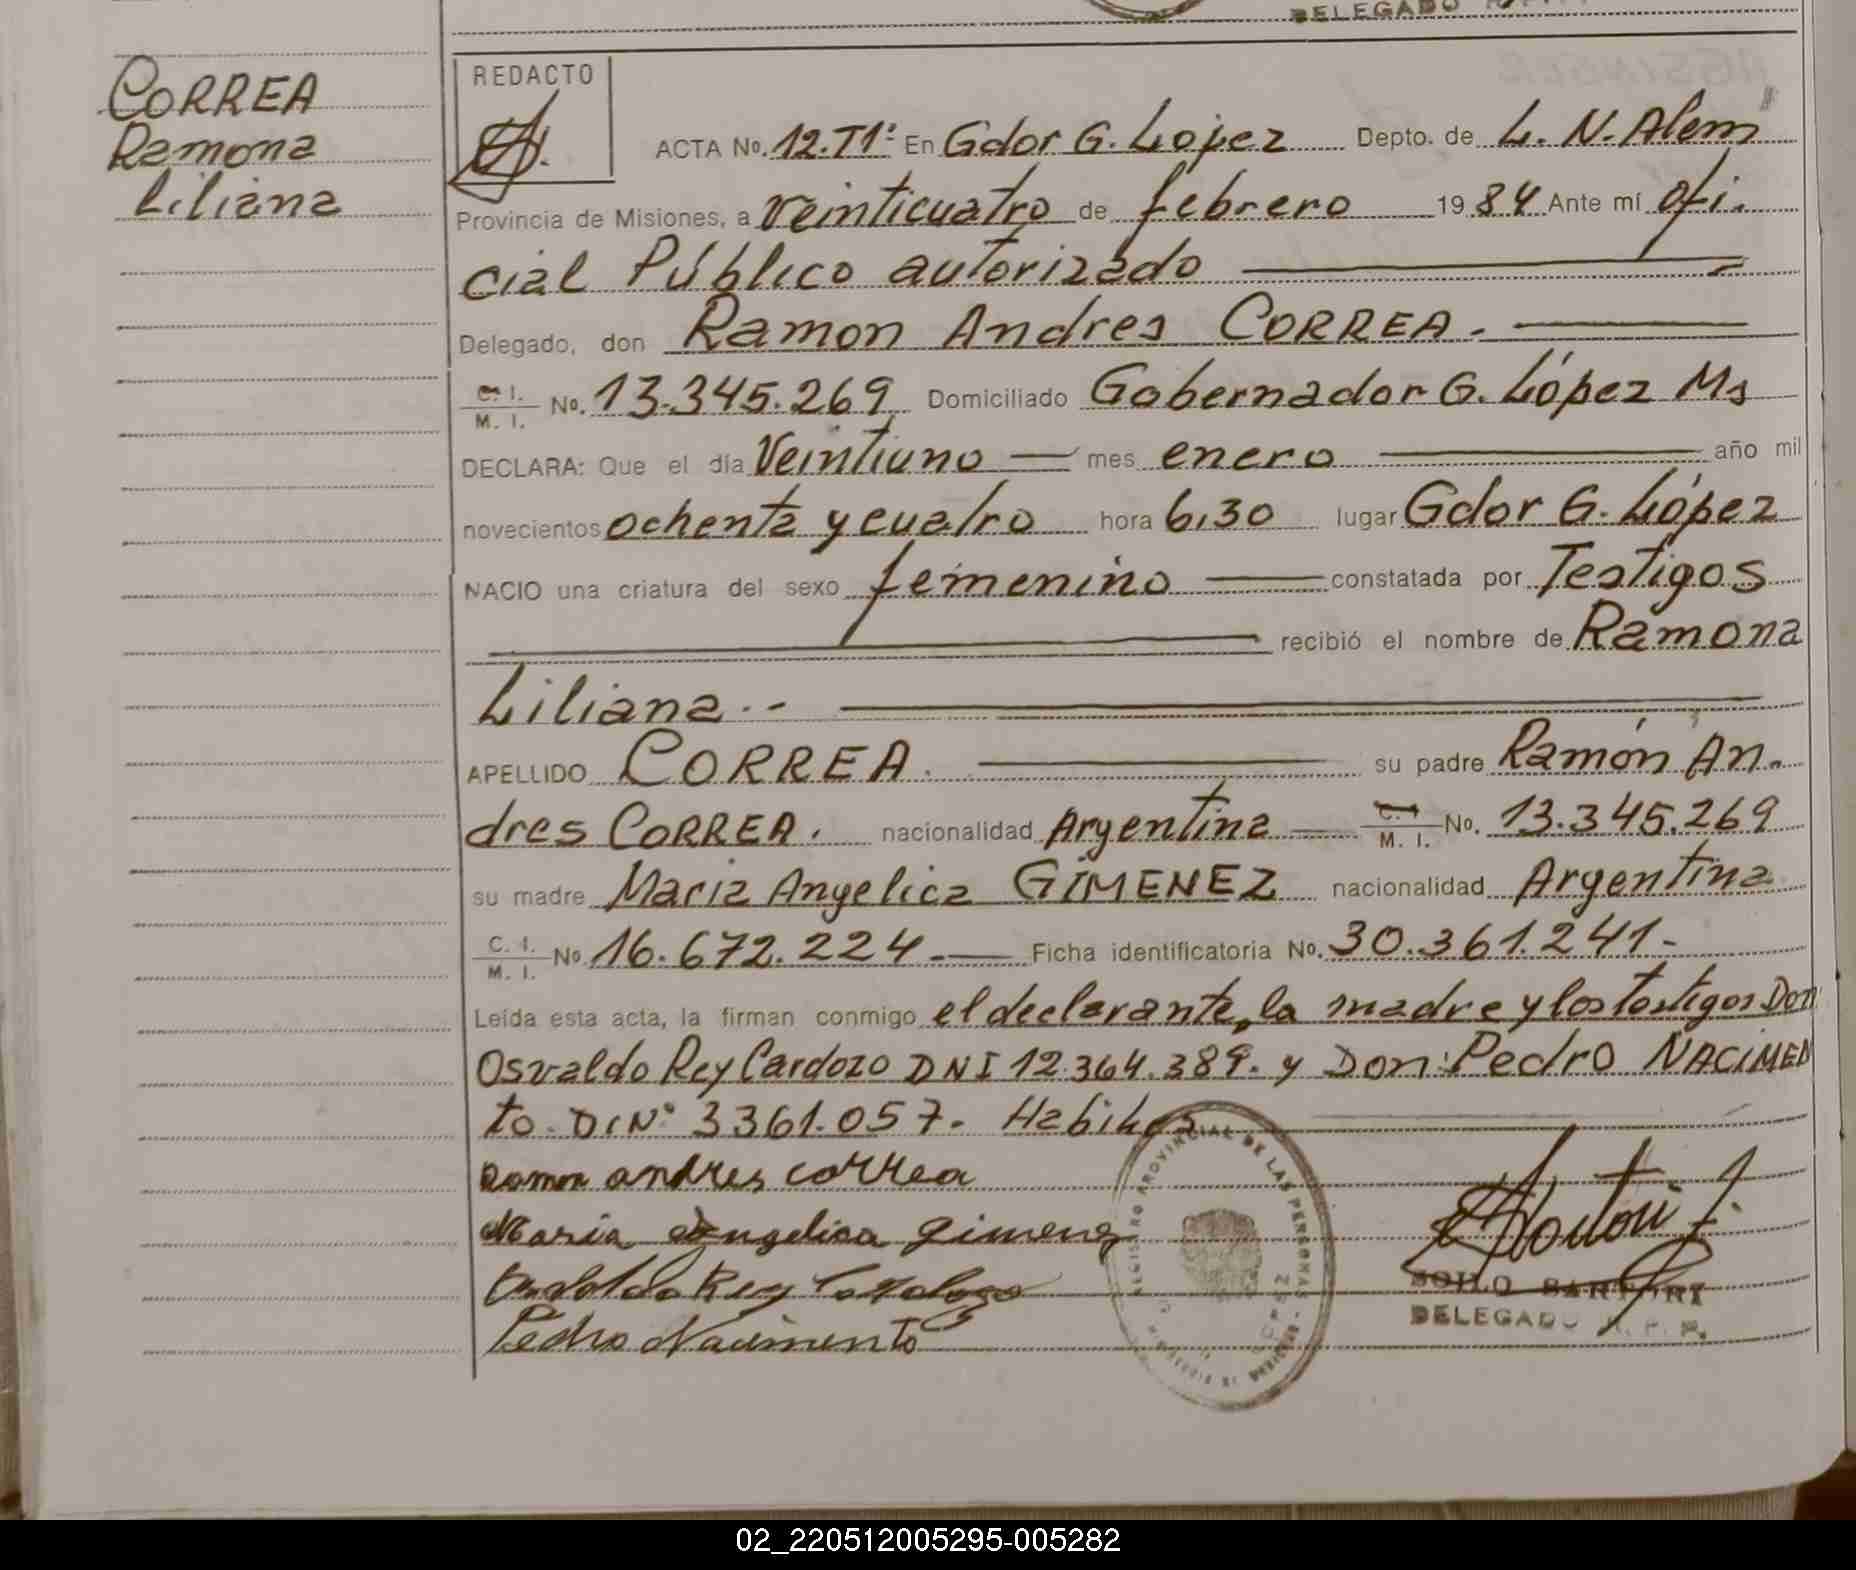 DELEGADO
CORREA
Ramona
Liliana
REDACTO
ACTA No. 12.T1º En Gdor G. López Depto. de L. N. Alem
Provincia de Misiones, a veinticuatro de febrero 1984 Ante mí ofi.
cial Público autorizado
Delegado, don Ramon Andres CORREA.
C. I. / M. I. No. 13.345.269 Domiciliado Gobernador G. López Ms
DECLARA: Que el día Veintiuno mes enero año mil
novecientos ochenta y cuatro hora 6,30 lugar Gdor G. López
NACIO una criatura del sexo femenino constatada por Testigos
recibió el nombre de Ramona
Liliana.-
APELLIDO CORREA. su padre Ramón An.
dres CORREA. nacionalidad Argentina C. I. / M. I. No. 13.345.269
su madre Maria Angelica GIMENEZ nacionalidad Argentina
C. I. / M. I. No 16.672.224.- Ficha identificatoria No. 30.361.241.-
Leída esta acta, la firman conmigo el declarante, la madre y los testigos Don
Osvaldo Rey Cardozo DNI 12.364.389. y Don: Pedro NACIMEN
to. DIN: 3361.057. Habiles
Ramon andres correa
Maria Angelica Gimenez
Pedro Nacimento
REGISTRO PROVINCIAL DE LAS PERSONAS
MISIONES
SOILO SARTORI
DELEGADO R. P. P.
02_220512005295-005282